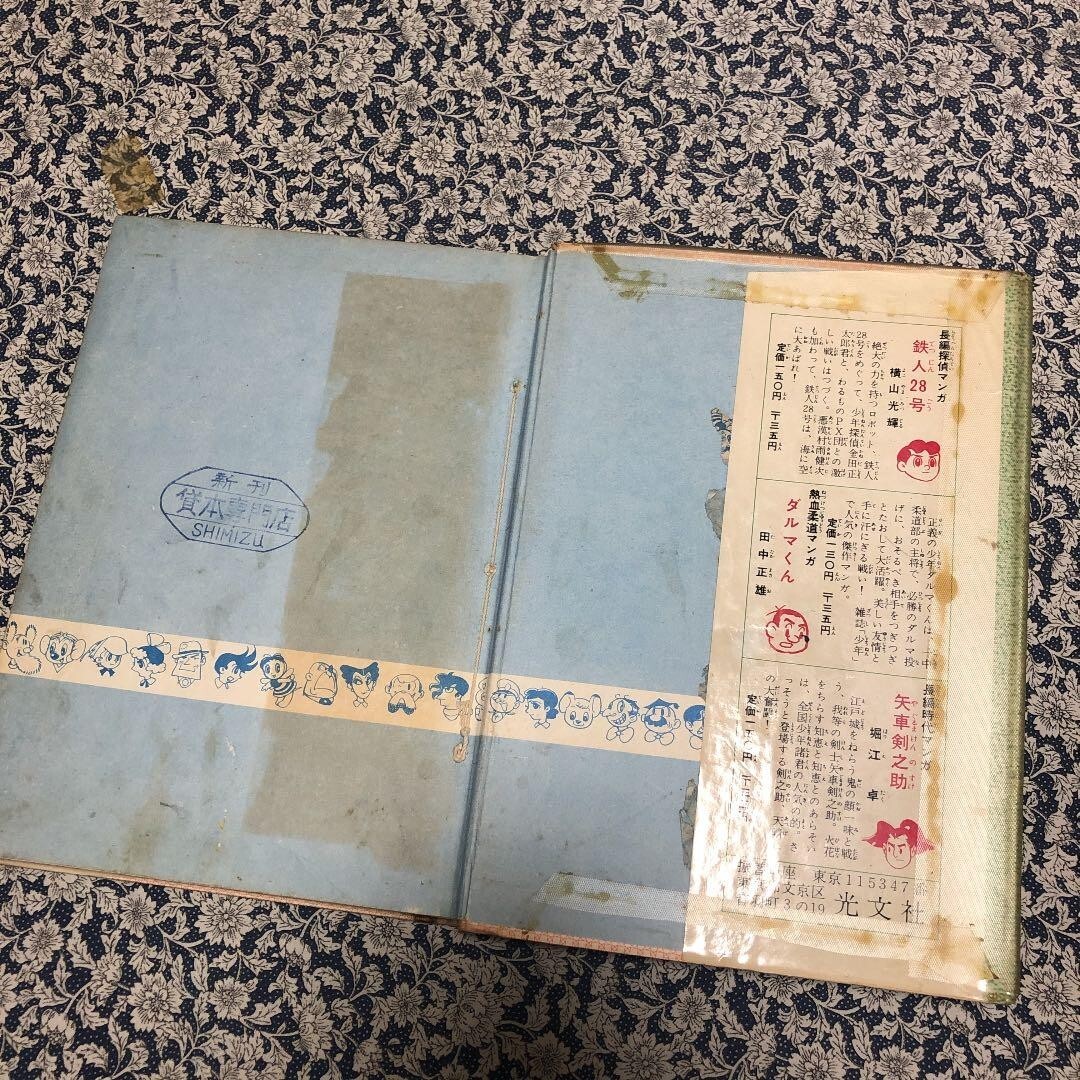 新刊
貸本専門店
SHIMIZU
長編探偵マンガ
鉄人28号
横山光輝
絶大の力を持つロボット、鉄人
28号をめぐって、少年探偵金田正
太郎君と、わるものPX団との激
しい戦いはつづく。悪漢村雨健次
も加わって、鉄人28号は、海に空
に大あばれ！
定価一五〇円 〒三五円
熱血柔道マンガ
ダルマくん
田中正雄
正義の少年ダルマくんは、一中
柔道部の主将で、必勝のダルマ投
げに、おそるべき相手をつぎつぎ
とたおして大活躍。美しい友情と
手に汗にぎる戦い！ 雑誌「少年」
で人気の傑作マンガ。
定価一三〇円 〒三五円
長編時代マンガ
矢車剣之助
堀江卓
江戸城をねらう鬼の顔一味と戦
う、我等の剣士矢車剣之助。火花
をちらす知恵と知恵とのあらそい
は、全国少年諸君の人気の的。さ
っそうと登場する剣之助、天
の大奮闘！
定価一
座 東京115347
文京区
町3の19 光文社